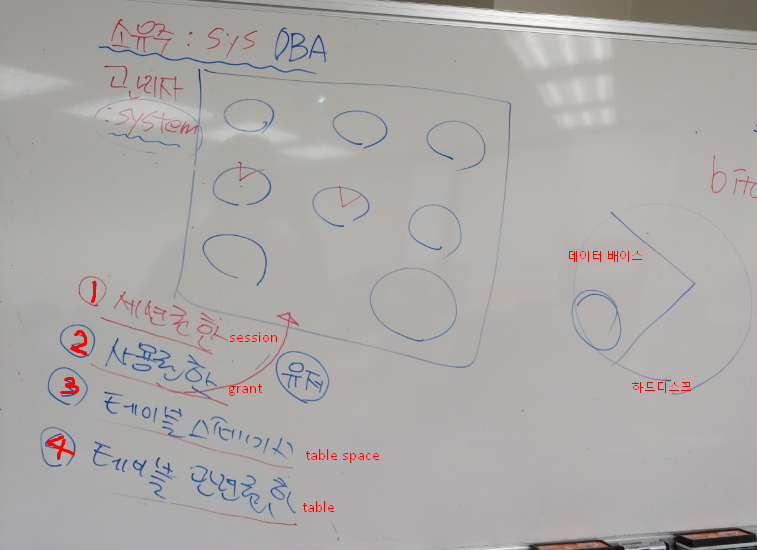 소유주 : sys DBA
관리자
: system
① 세션권한 session
② 사용권한 grant
유저
③ 테이블 스페이스 table space
④ 테이블 관련권한 table
데이터 배이스
하드디스크